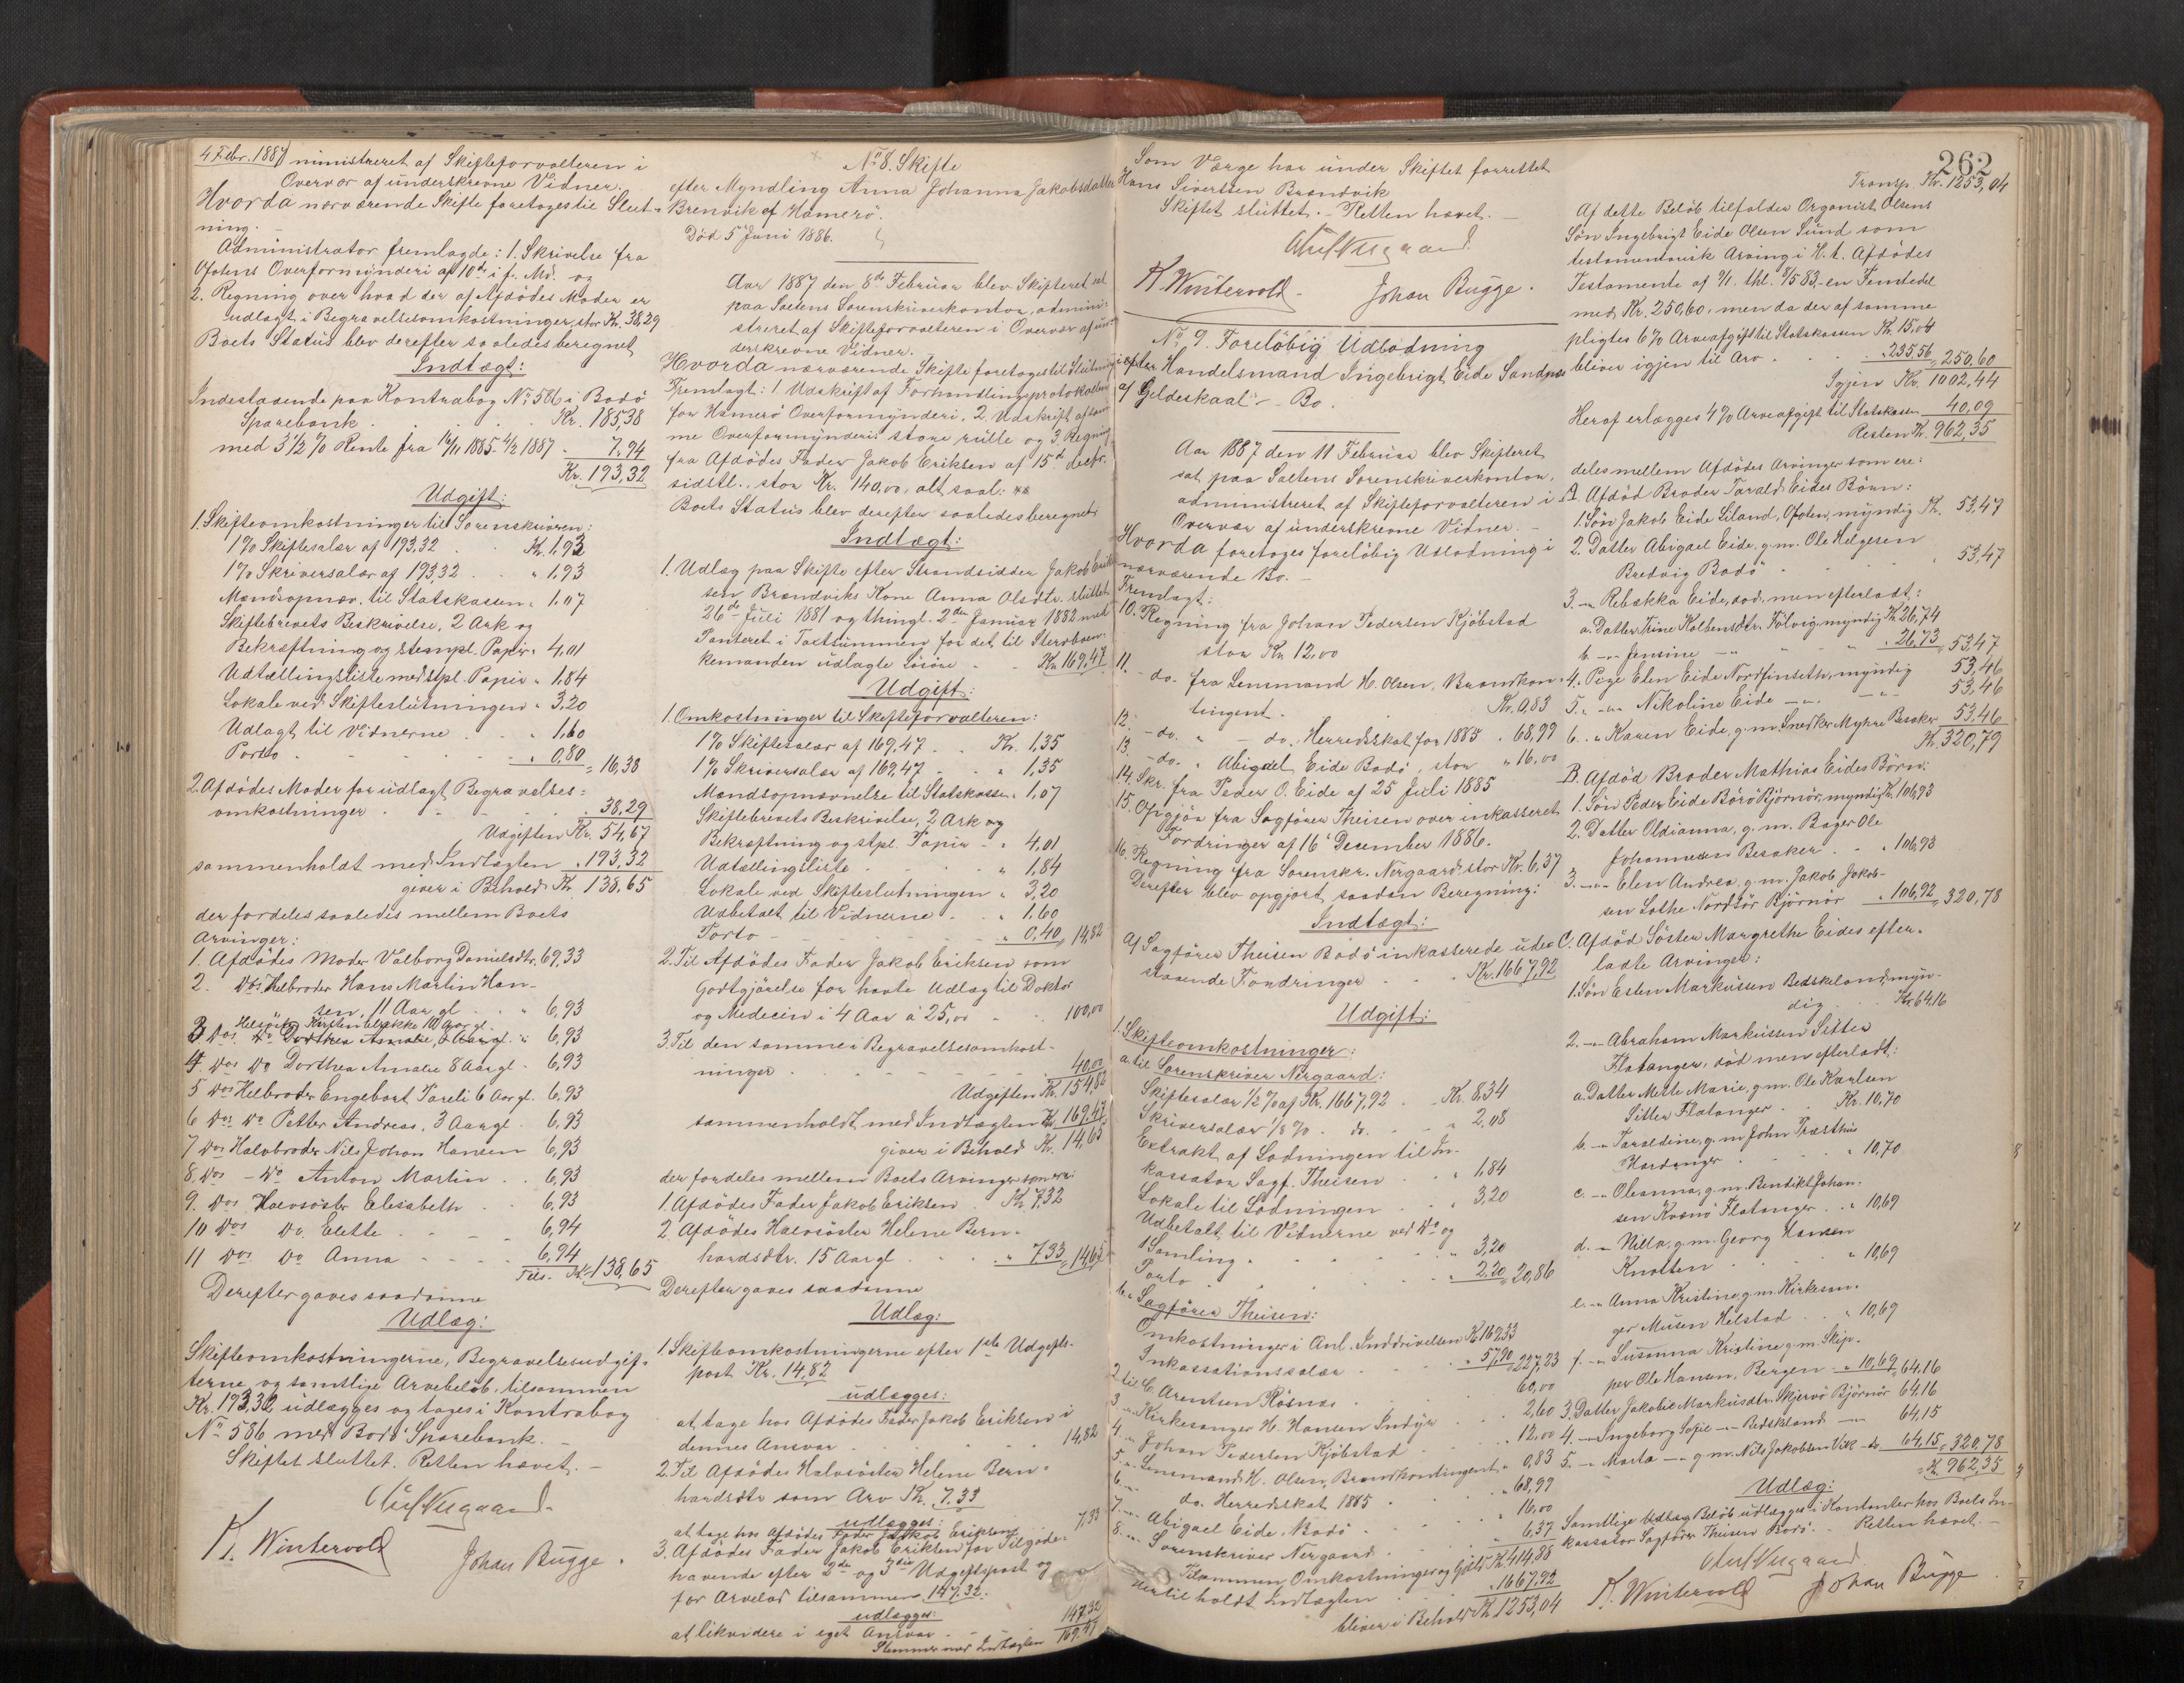 4 Febr. 1887 ministreret af Skifteforvalteren i
Overvær af underskrevne Vidner.
Hvorda nærværende Skifte foretoges til Slut-
ning.
Administrator fremlagde: 1. Skrivelse fra
Ofotens Overformynderi af 10de i f. Md. og
2. Regning over hvad der af Afdødes Moder er
udlagt i Begravelsesomkostninger, stor Kr. 38,29
Boets Status blev derefter saaledes beregnet
Indtægt:
Indestaaende paa Kontrabog No 586 i Bodö
Sparebank . . Kr. 185,38
med 3 1/2 % Rente fra 14/11 1885 - 4/2 1887 - 7,94
Kr. 193,32
Udgift:
1. Skifteomkostninger til Sorenskriveren:
1% Skiftesalær af 193,32 . . Kr. 1,93
1% Skriversalær af 193,32 . . " 1,93
Mandsopnævn. til Statskassen " 1,07
Skiftebrevets Beskrivelse, 2 Ark og
Bekræftning og stempl. Papir " 4,01
Udtællingsliste med stpl. Papir " 1,84
Lokale ved Skifteslutningen " 3,20
Udlagt til Vidnerne . . " 1,60
Porto . . . " 0,80 " 16,38
2. Afdödes Moder for udlagt Begravelses=
omkostninger . . . 38,29
Udgiften Kr. 54,67
sammenholdt med Indtægten " 193,32
giver i Behold Kr. 138,65
der fordeles saaledes mellem Boets
Arvinger:
1. Afdödes Moder Valborg Danielsdtr. 69,33
2. Dos Helbroder Hans Martin Han-
sen, 11 Aar gl . . " 6,93
3 Dos Helsöster Kirsten 10 Aar gl. " 6,93
4 Dos Do Dorthea Amalie 8 Aar gl - 6,93
5 Dos Helbroder Engebart Tareli 6 Aar gl. 6,93
6 Dos Do Petter Andreas, 3 Aar gl . 6,93
7 Dos Halvbroder Nils Johan Hansen 6,93
8. Dos - Do Anton Martin . . 6,93
9. Dos Halvsöster Elisabeth . . 6,93
10 Dos Do. Elette . . . 6,94
11 Dos Do Anna . . . 6,94
Tils. Kr. 138,65
Derefter gaves saadanne
Udlæg:
Skifteomkostningerne, Begravelsesudgif-
terne og samtlige Arvebeløb, tilsammen
Kr. 193,32, udlægges og tages i Kontrabog
No 586 med Bodö Sparebank. -
Skiftet sluttet. Retten hævet. -
K. Wintervold
Johan Bugge.
No 8. Skifte
efter Myndling Anna Johanna Jakobsdatter
Brenvik af Hamerö.
Död 5 Juni 1886.
Aar 1887 den 8de Februar blev Skifteret sat
paa Saltens Sorenskriverkontor, admini-
streret af Skifteforvalteren i Overvær af un-
derskrevne Vidner.
Hvorda nærværende Skifte foretoges til Slutning
Fremlagt: 1 Udskrift af Forhandlingsprotokollen
for Hamerö Overformynderi, 2. Udskrift af sam
me Overformynderi store rulle og 3. Regning
fra Afdödes Fader Jakob Eriksen af 15de decbr.
sidstl., stor Kr. 140,00, alt saal:
Boets Status blev derefter saaledes beregnet
Indtægt:
1. Udlæg paa Skifte efter Strandsidder Jakob Erik
sen Brændviks Kone Anna Olsdtr. sluttet
26de Juli 1881 og thingl. 2den Januar 1882 med
Panteret i Taxtsummen for det til Sterboen-
kemanden udlagte Lösöre - Kr. 169,47
Udgift:
1. Omkostninger til Skifteforvalteren:
1% Skiftesalær af 169,47 . . Kr. 1,35
1% Skriversalær af 169,47 - " 1,35
Mandsopnævnelse til Statskassen " 1,07
Skiftebrevets Beskrivelse, 2 Ark og
Bekræftning og stpl. Papir - " 4,01
Udtællingsliste . . . " 1,84
Lokale ved Skifteslutningen " 3,20
Udbetalt til Vidnerne . . " 1,60
Porto - - - " 0,40 " 14,82
2. Til Afdödes Fader Jakob Eriksen som
Godtgjörelse for havte Udlæg til Doktor
og Medecin i 4 Aar a 25,00 - - 100,00
3. Til den samme i Begravelsesomkost-
ninger . . . 40,00
Udgiften Kr. 154,82
sammenholdt med Indtægten Kr. 169,47
giver i Behold Kr. 14,65
der fordeles mellem Boets Arvinger som er:
1. Afdödes Fader Jakob Eriksen . Kr. 7,32
2. Afdödes Halvsöster Helene Bern-
hardsdtr. 15 Aar gl . . " 7,33 " 14,65
Derefter gaves saadanne
Udlæg:
1. Skifteomkostningerne efter 1ste Udgifts-
post Kr. 14,82
udlægges:
at tage hos Afdödes Fader Jakob Eriksen i
dennes Ansvar . . . 14,82
2. Til Afdödes Halvsöster Helene Bern-
hardsdtr som Arv Kr. 7,33
udlægges:
at tage hos Afdödes Fader Jakob Eriksen 7,33
3. Afdödes Fader Jakob Eriksen for Tilgode-
havende efter 2de og 3die Udgiftspost og
for Arvelod tilsammen 147,32.
udlægges:
at likvidere i eget Ansvar . . 147,32
Stemmer med Indtægten 169,47
262
Som Værge har under Skiftet forrettet
Hans Sivertsen Brændvik
Skiftet sluttet. - Retten hævet. -
K. Wintervold
Johan Bugge.
No 9. Foreløbig Udlodning
i efter Handelsmand Ingebrigt Eide Sandnes
af Gildeskaal - Bo.
Aar 1887 den 11 Februar blev Skifteret
sat paa Saltens Sorenskriverkontor,
administreret af Skifteforvalteren i
Overvær af underskrevne Vidner. -
Hvorda foretoges foreløbig Udlodning i
nærværende Bo. -
Fremlagt:
10. Regning fra Johan Pedersen Kjöbstad
stor Kr 12,00
11. - do. fra Lensmand H. Olsen, Brandkon-
tingent. . . Kr. 0,83
12. - do. " - do. Herredsskat for 1885 . 68,99
13. - do. " Abigael Eide Bodö, stor " 16,00
14. Skr. fra Peder O. Eide af 25 Juli 1885
15. Opgjör fra Sagförer Theisen over inkasseret
Fordringer af 16 December 1886.
16. Regning fra Sorenskr. Nergaard stor Kr. 6,37
Derefter blev opgjort saadan Beregning:
Indtægt:
a/ Sagförer Theisen Bodö inkasserede ude-
staaende Fordringer . . Kr. 1667,92
Udgift:
1. Skifteomkostninger:
a. til Sorenskriver Nergaard:
Skiftesalær 1/2 % af Kr. 1667,92 . . Kr. 8,34
Skriversalær 1/8 % . do. - - " 2,08
Extrakt af Lodningen til In-
kassator Sagf. Theisen . . " 1,84
Lokale til Lodningen . . " 3,20
Udbetalt til Vidnerne ved Do og
1 Samling . . . " 3,20
Porto . . . " 2,20 " 20,86
b. Sagförer Theisen:
Omkostninger i Anl. Inddrivelsen Kr 169,33
Inkassationssalær . . " 57,90 " 227,23
2 til C. Arentsen Rösnæs . . 60,00
3 -"- Kirkesanger H. Hansen Indyr . . 2,60
4 -"- Johan Pedersen Kjöbstad . . 12,00
5 -"- Lensmand H. Olsen, Brandkontingent " 0,83
6 -"- do. Herredsskat 1885 . . " 68,99
7. -"- Abigael Eide, Bodö . . 16,00
8. -"- Sorenskriver Nergaard . . 6,37
Tilsammen Omkostninger og Gjeld Kr. 414,88
Hertil holdt Indtægten . . " 1667,92
bliver i Behold Kr. 1253,04
Transp. Kr. 1253,04
Af dette Beløb tilfalder Organist Olsens
Sön Ingebrigt Eide Olsen Sund som
testamentarisk Arving i H. t. Afdödes
Testamente af 9/1 thl. 8/5 83, en Femtedel
med Kr. 250,60, men da der af samme
pligtes 6% Arveafgift til Statskassen Kr. 15,04
bliver igjen til Arv . . . " 235,56 " 250,60
Igjen Kr. 1002,44
Heraf erlægges 4% Arveafgift til Statskassen 40,09
Resten Kr. 962,35
deles mellem Afdödes Arvinger som ere:
A. Afdöd Broder Tarald Eides Börn:
1. Sön Jakob Eide Liland, Ofoten, myndig Kr. 53,47
2. Datter Abigael Eide, g.m. Ole Helgesen
Bredvig Bodö . . . " 53,47
3. -"- Rebekka Eide, död, men efterladt:
a. Datter Trine Kolbensdtr. Fölvig myndig Kr 26,74
b. -"- Jensine -"- " " 26,73 " 53,47
4. Pige Elen Eide Nordfinseth, myndig 53,46
5. -"- Nikoline Eide -"- 53,46
6. " Karen Eide, g.m. Snedker Myhre Besaker 53,46
Kr. 320,79
B. Afdöd Broder Mathias Eides Börn:
1. Sön Peder Eide Börö Björnör, myndig Kr. 106,93
2. Datter Oldianna, g. m. Bager Ole
Johannesen Besaker . . " 106,93
3. -"- Elen Andrea, g. m. Jakob Jakob-
sen Lothe Nordsör Björnör " 106,92 " 320,78
C. Afdöd Söster Margrethe Eides efter-
ladte Arvinger:
1. Sön Esten Markussen Bedskeland, myn-
dig . . Kr. 64,16
2. -"- Abraham Markussen Sitter
Flatanger, död men efterladt:
a. Datter Mette Marie, g.m. Ole Karlsen
Sitter Flatanger . . Kr. 10,70
b. -"- Taraldine, g.m. John Præsthus
Hardanger . . " 10,70
c. -"- Oleanna, g.m. Bendikt Johan-
sen Kvænö Flatanger . . " 10,69
d. -"- Nilla, g.m. Georg Hansen
Knotten . . " 10,69
e. -"- Anna Kristine, g.m. Kirkesan-
ger Musen Helstad . . " 10,69
f. -"- Susanna Kristine g.m. Skip-
per Ole Hansen, Bergen " 10,69 " 64,16
3. Datter Jakobie Markusdtr. Skjervö Björnör 64,16
4. -"- Ingeborg Sofie -"- Bedskeland -"- 64,15
5. -"- Marta -"- g.m. Nils Jakobsen Vik - do 64,15 " 320,78
Kr. 962,35
Udlæg:
Samtlige Udlæg Beløb udlægges i Kontanter hos Boets In-
kassator Sagförer Theisen Bodö. - Retten hævet. -
K. Wintervold
Johan Bugge